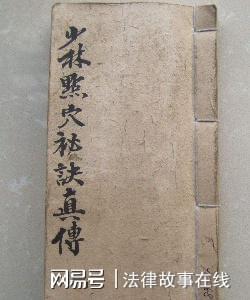 少林點穴祕訣真傳
网易号 / 法律故事在线